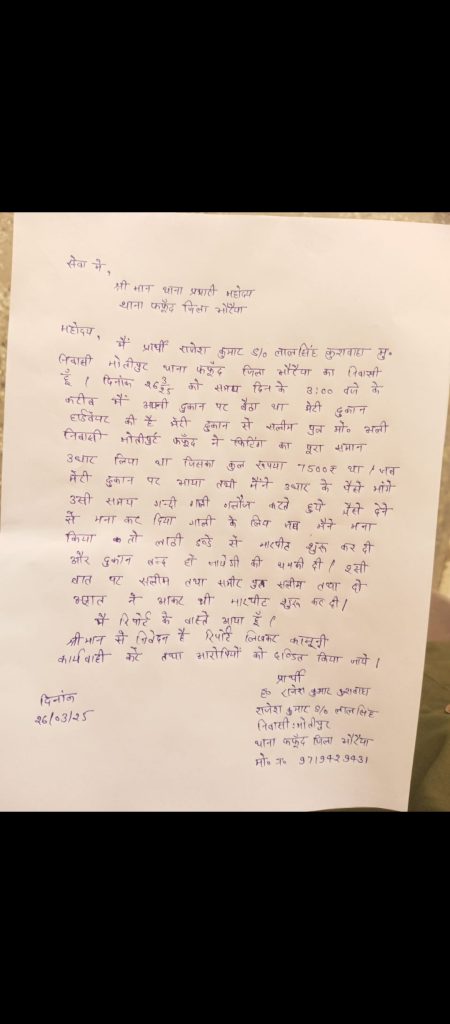 सेवा में,
श्रीमान थाना प्रभारी महोदय
थाना फफूँद जिला औरैया
महोदय,
मैं प्रार्थी राजेश कुमार S/o लालसिंह कुशवाहा मु०
निवासी मोतीपुर थाना फफूँद जिला औरैया का निवासी
हूँ। दिनांक 26 3/25 को समय दिन के 3:00 वजे के
करीब मैं अपनी दुकान पर बैठा था मेरी दुकान
हार्डवेयर की है मेरी दुकान से सलीम पुत्र मो० अली
निवासी मोतीपुर फफूँद ने फिटिंग का पूरा समान
उधार लिया था जिसका कुल रूपया 7500₹ था। जव
मेरी दुकान पर आया तभी मैंने उधार के पैसे मांगे
उसी समय गन्दी गाली गलौज करते हुये पैसे देने
से मना कर दिया गाली के लिय जब मैंने मना
किया तो लाठी डण्डे से मारपीट शुरू कर दी
और दुकान वन्द हो जायेगी की धमकी दी। इसी
वात पर सलीम तथा समीर पुत्र सलीम तथा दो
अज्ञात ने आकर भी मारपीट शुरू कर दी।
मैं रिपोर्ट के वास्ते आया हूँ।
श्रीमान से निवेदन है रिपोर्ट लिखकर कानूनी
कार्यवाही करें तथा आरोपियों को दण्डित किया जाये।
प्रार्थी
ह० राजेश कुमार कुशवाहा
राजेश कुमार S/o लालसिंह
निवासी: मोतीपुर
थाना फफूँद जिला औरैया
मो० न० 9719429431
दिनांक
26/03/25